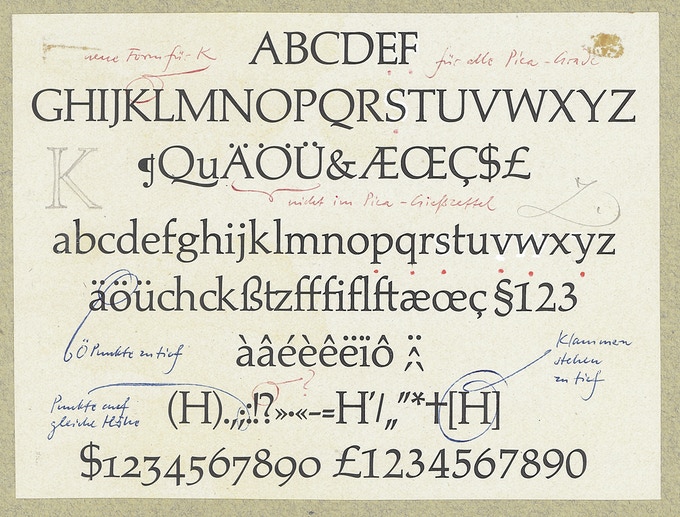 ABCDEF
neue Form für K
für alle Pica-Grade
GHIJKLMNOPQRSTUVWXYZ
¶QuÄÖÜ&ÆŒÇ$£
K
nicht im Pica-Gießzettel
abcdefghijklmnopqrstuvwxyz
äöüchckßtzfffiflftæœç§123
àâéèêëïô
Ö Punkte zu tief
Klammern
stehen
zu tief
Punkte auf
gleiche Höhe
?
(H).,;:!?»·«-=H'/„"*†[H]
$1234567890 £1234567890